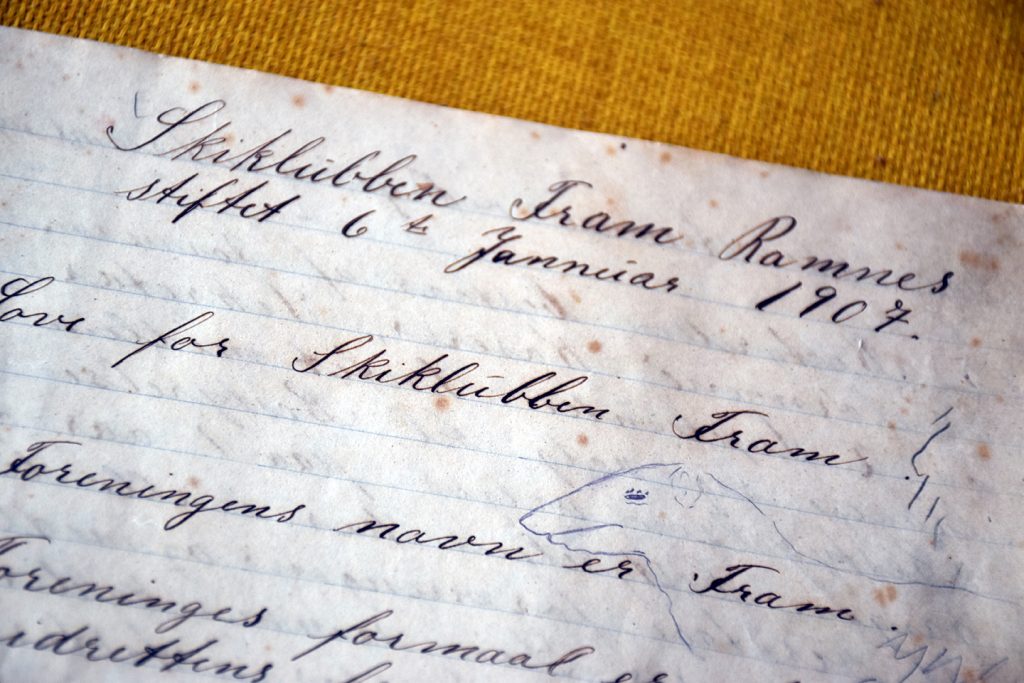 Skiklubben Fram Ramnes
stiftet 6 t Jannuar 1907.
Love for Skiklubben Fram.
Foreningens navn er Fram.
Foreninges formaal er
idrættens